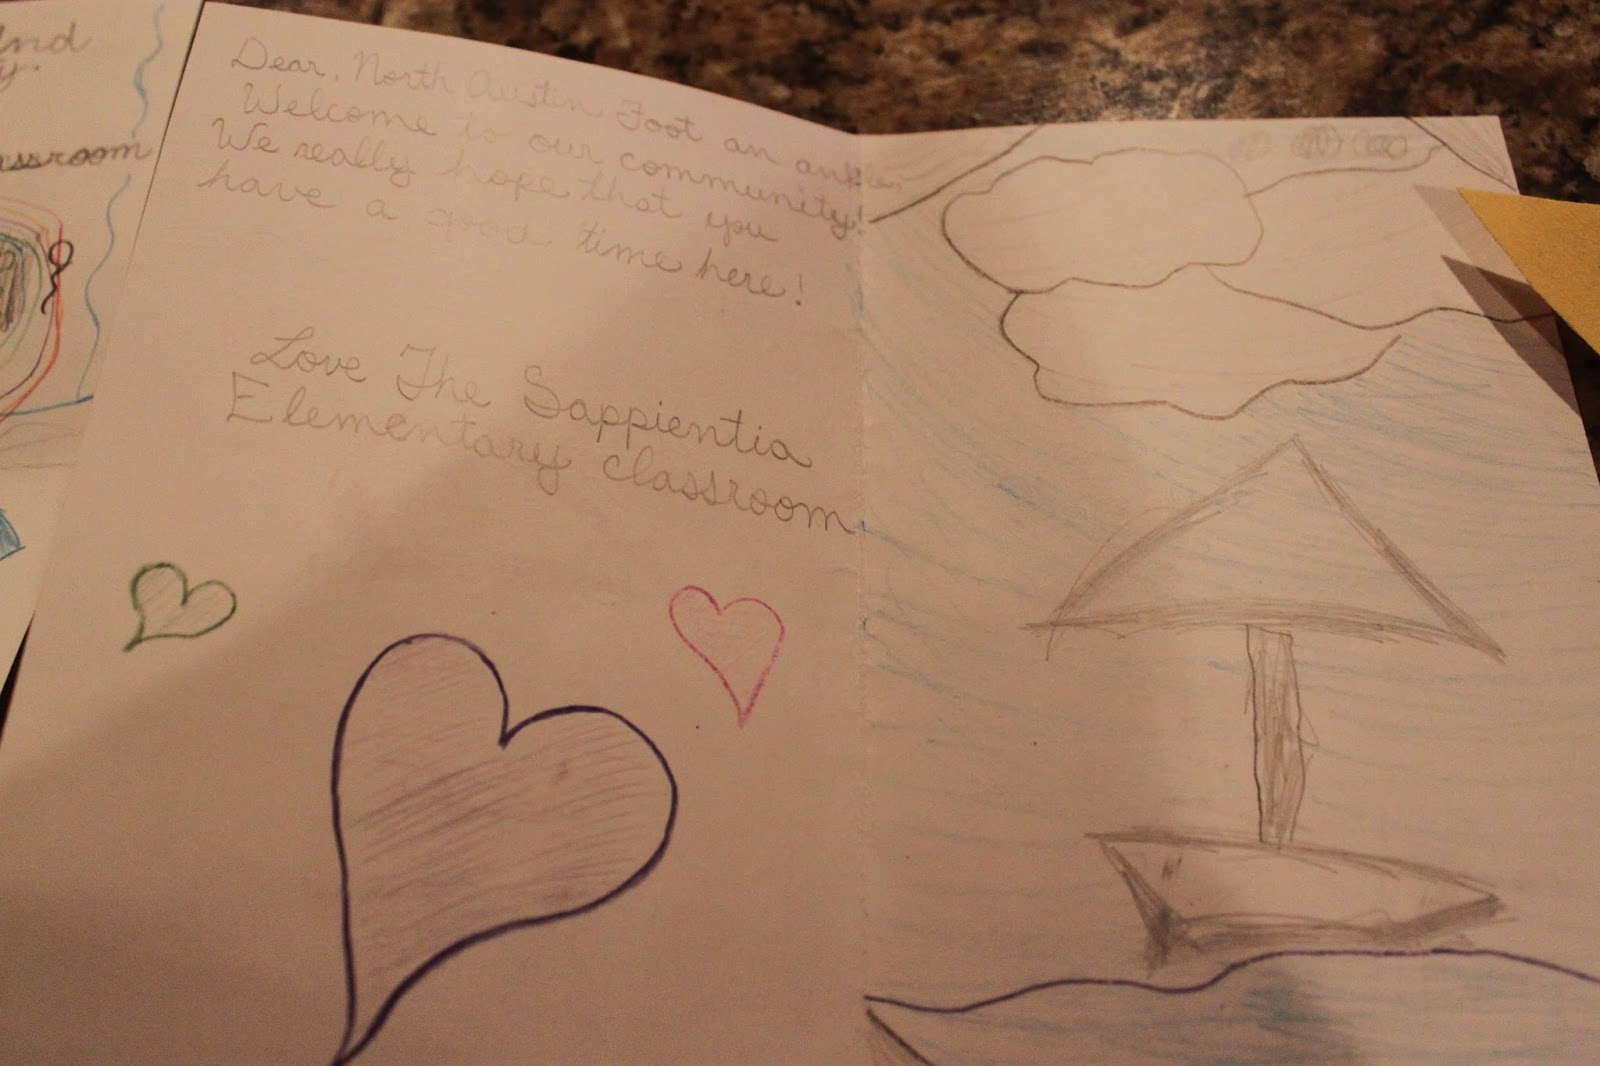 and
y.
assroom
Dear, North Austin Foot an ankle,
Welcome to our community!
We really hope that you
have a good time here!
Love The Sappientia
Elementary classroom